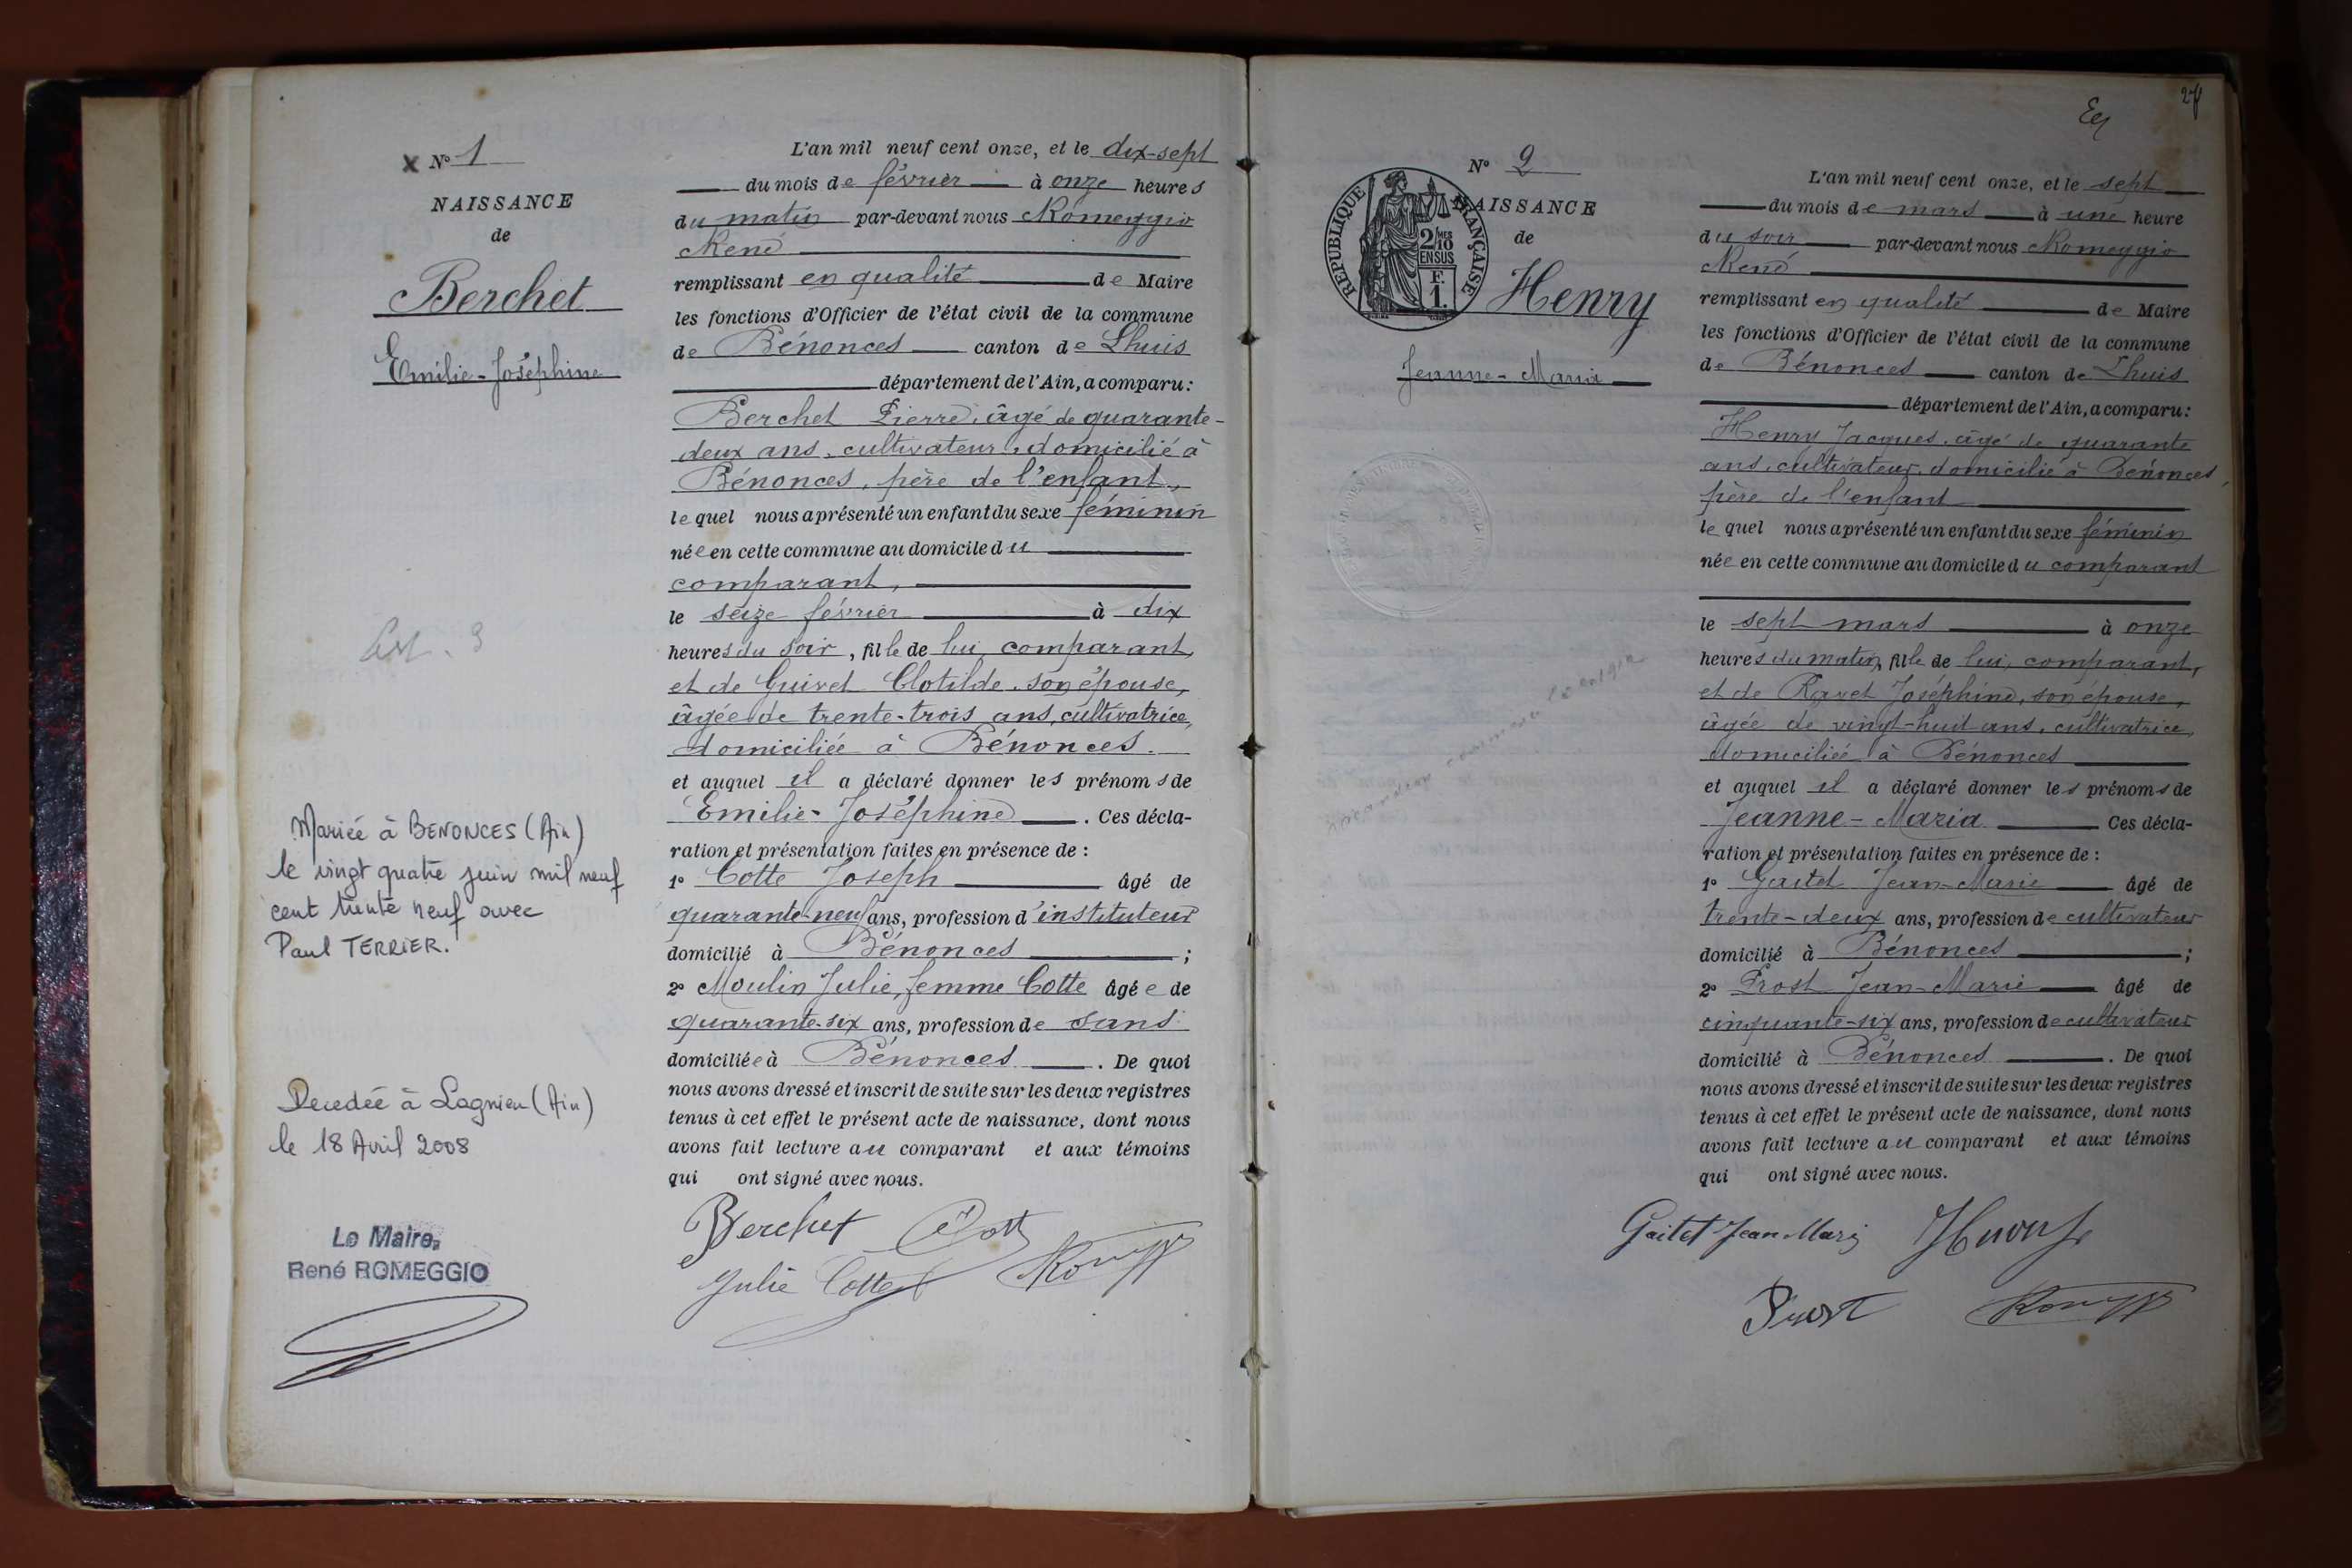 N° 1
NAISSANCE
de
Berchet
Emilie-Joséphine
Mariée à BENONCES (Ain)
le vingt quatre juin mil neuf
cent trente neuf avec
Paul TERRIER.
Decedée à Lagnieu (Ain)
le 18 Avril 2008
Le Maire,
René ROMEGGIO
L'an mil neuf cent onze, et le dix-sept
du mois de février à onze heures
du matin par-devant nous Romeggio
René
remplissant en qualité de Maire
les fonctions d'Officier de l'état civil de la commune
de Bénonces canton de Lhuis
département de l'Ain, a comparu:
Berchet Pierre, âgé de quarante-
deux ans, cultivateur, domicilié à
Bénonces, père de l'enfant,
lequel nous a présenté un enfant du sexe féminin
née en cette commune au domicile du
comparant,
le seize février à dix
heures du soir, fille de lui, comparant,
et de Guivet Clotilde, son épouse,
âgée de trente-trois ans, cultivatrice,
domiciliée à Bénonces.
et auquel il a déclaré donner les prénoms de
Emilie-Joséphine. Ces décla-
ration et présentation faites en présence de :
1° Cotte Joseph âgé de
quarante-neuf ans, profession d'instituteur
domicilié à Bénonces ;
2° Moulin Julie, femme Cotte âgée de
quarante-six ans, profession de sans
domiciliée à Bénonces. De quoi
nous avons dressé et inscrit de suite sur les deux registres
tenus à cet effet le présent acte de naissance, dont nous
avons fait lecture au comparant et aux témoins
qui ont signé avec nous.
Berchet Cotte
Julie Cotte
27
N° 2
NAISSANCE
de
Henry
Jeanne-Maria
REPUBLIQUE FRANÇAISE
2/10 MES
EN SUS
F.
1.
L'an mil neuf cent onze, et le sept
du mois de mars à une heure
du soir par-devant nous Romeggio
René
remplissant en qualité de Maire
les fonctions d'Officier de l'état civil de la commune
de Bénonces canton de Lhuis
département de l'Ain, a comparu:
Henry Jacques, âgé de quarante
ans, cultivateur, domicilié à Bénonces,
père de l'enfant
lequel nous a présenté un enfant du sexe féminin
née en cette commune au domicile du comparant
le sept mars à onze
heures du matin, fille de lui, comparant,
et de Ravet Joséphine, son épouse,
âgée de vingt-huit ans, cultivatrice,
domiciliée à Bénonces
et auquel il a déclaré donner les prénoms de
Jeanne-Maria Ces décla-
ration et présentation faites en présence de :
1° Gaitet Jean-Marie âgé de
trente-deux ans, profession de cultivateur
domicilié à Bénonces ;
2° Prost Jean-Marie âgé de
cinquante-six ans, profession de cultivateur
domicilié à Bénonces. De quoi
nous avons dressé et inscrit de suite sur les deux registres
tenus à cet effet le présent acte de naissance, dont nous
avons fait lecture au comparant et aux témoins
qui ont signé avec nous.
Gaitet Jean Marie Henry
Prost